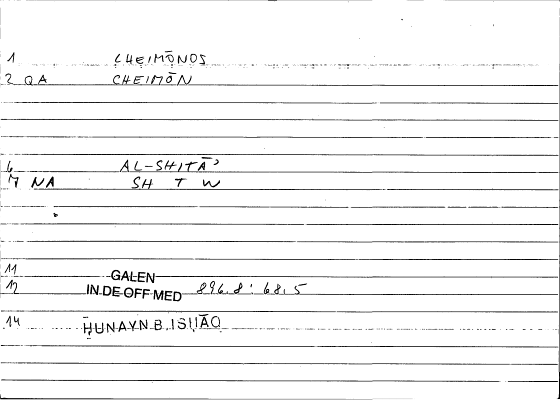 1 CHEIMŌNOS
2 QA CHEIMŌN
6 AL-SHITĀʾ
7 NA SH T W
11 GALEN
12 IN DE OFF MED 896.8 : 68,5
14 ḤUNAYN B. ISḤĀQ